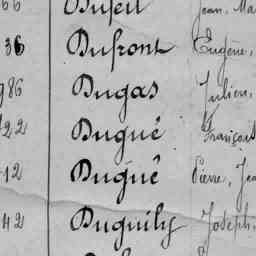 66 Dufeu Jean, Ma
36 Dufront Eugène,
986 Dugas Julien,
722 Dugué François
12 Dugué Pierre, Jea
42 Duguily Joseph,